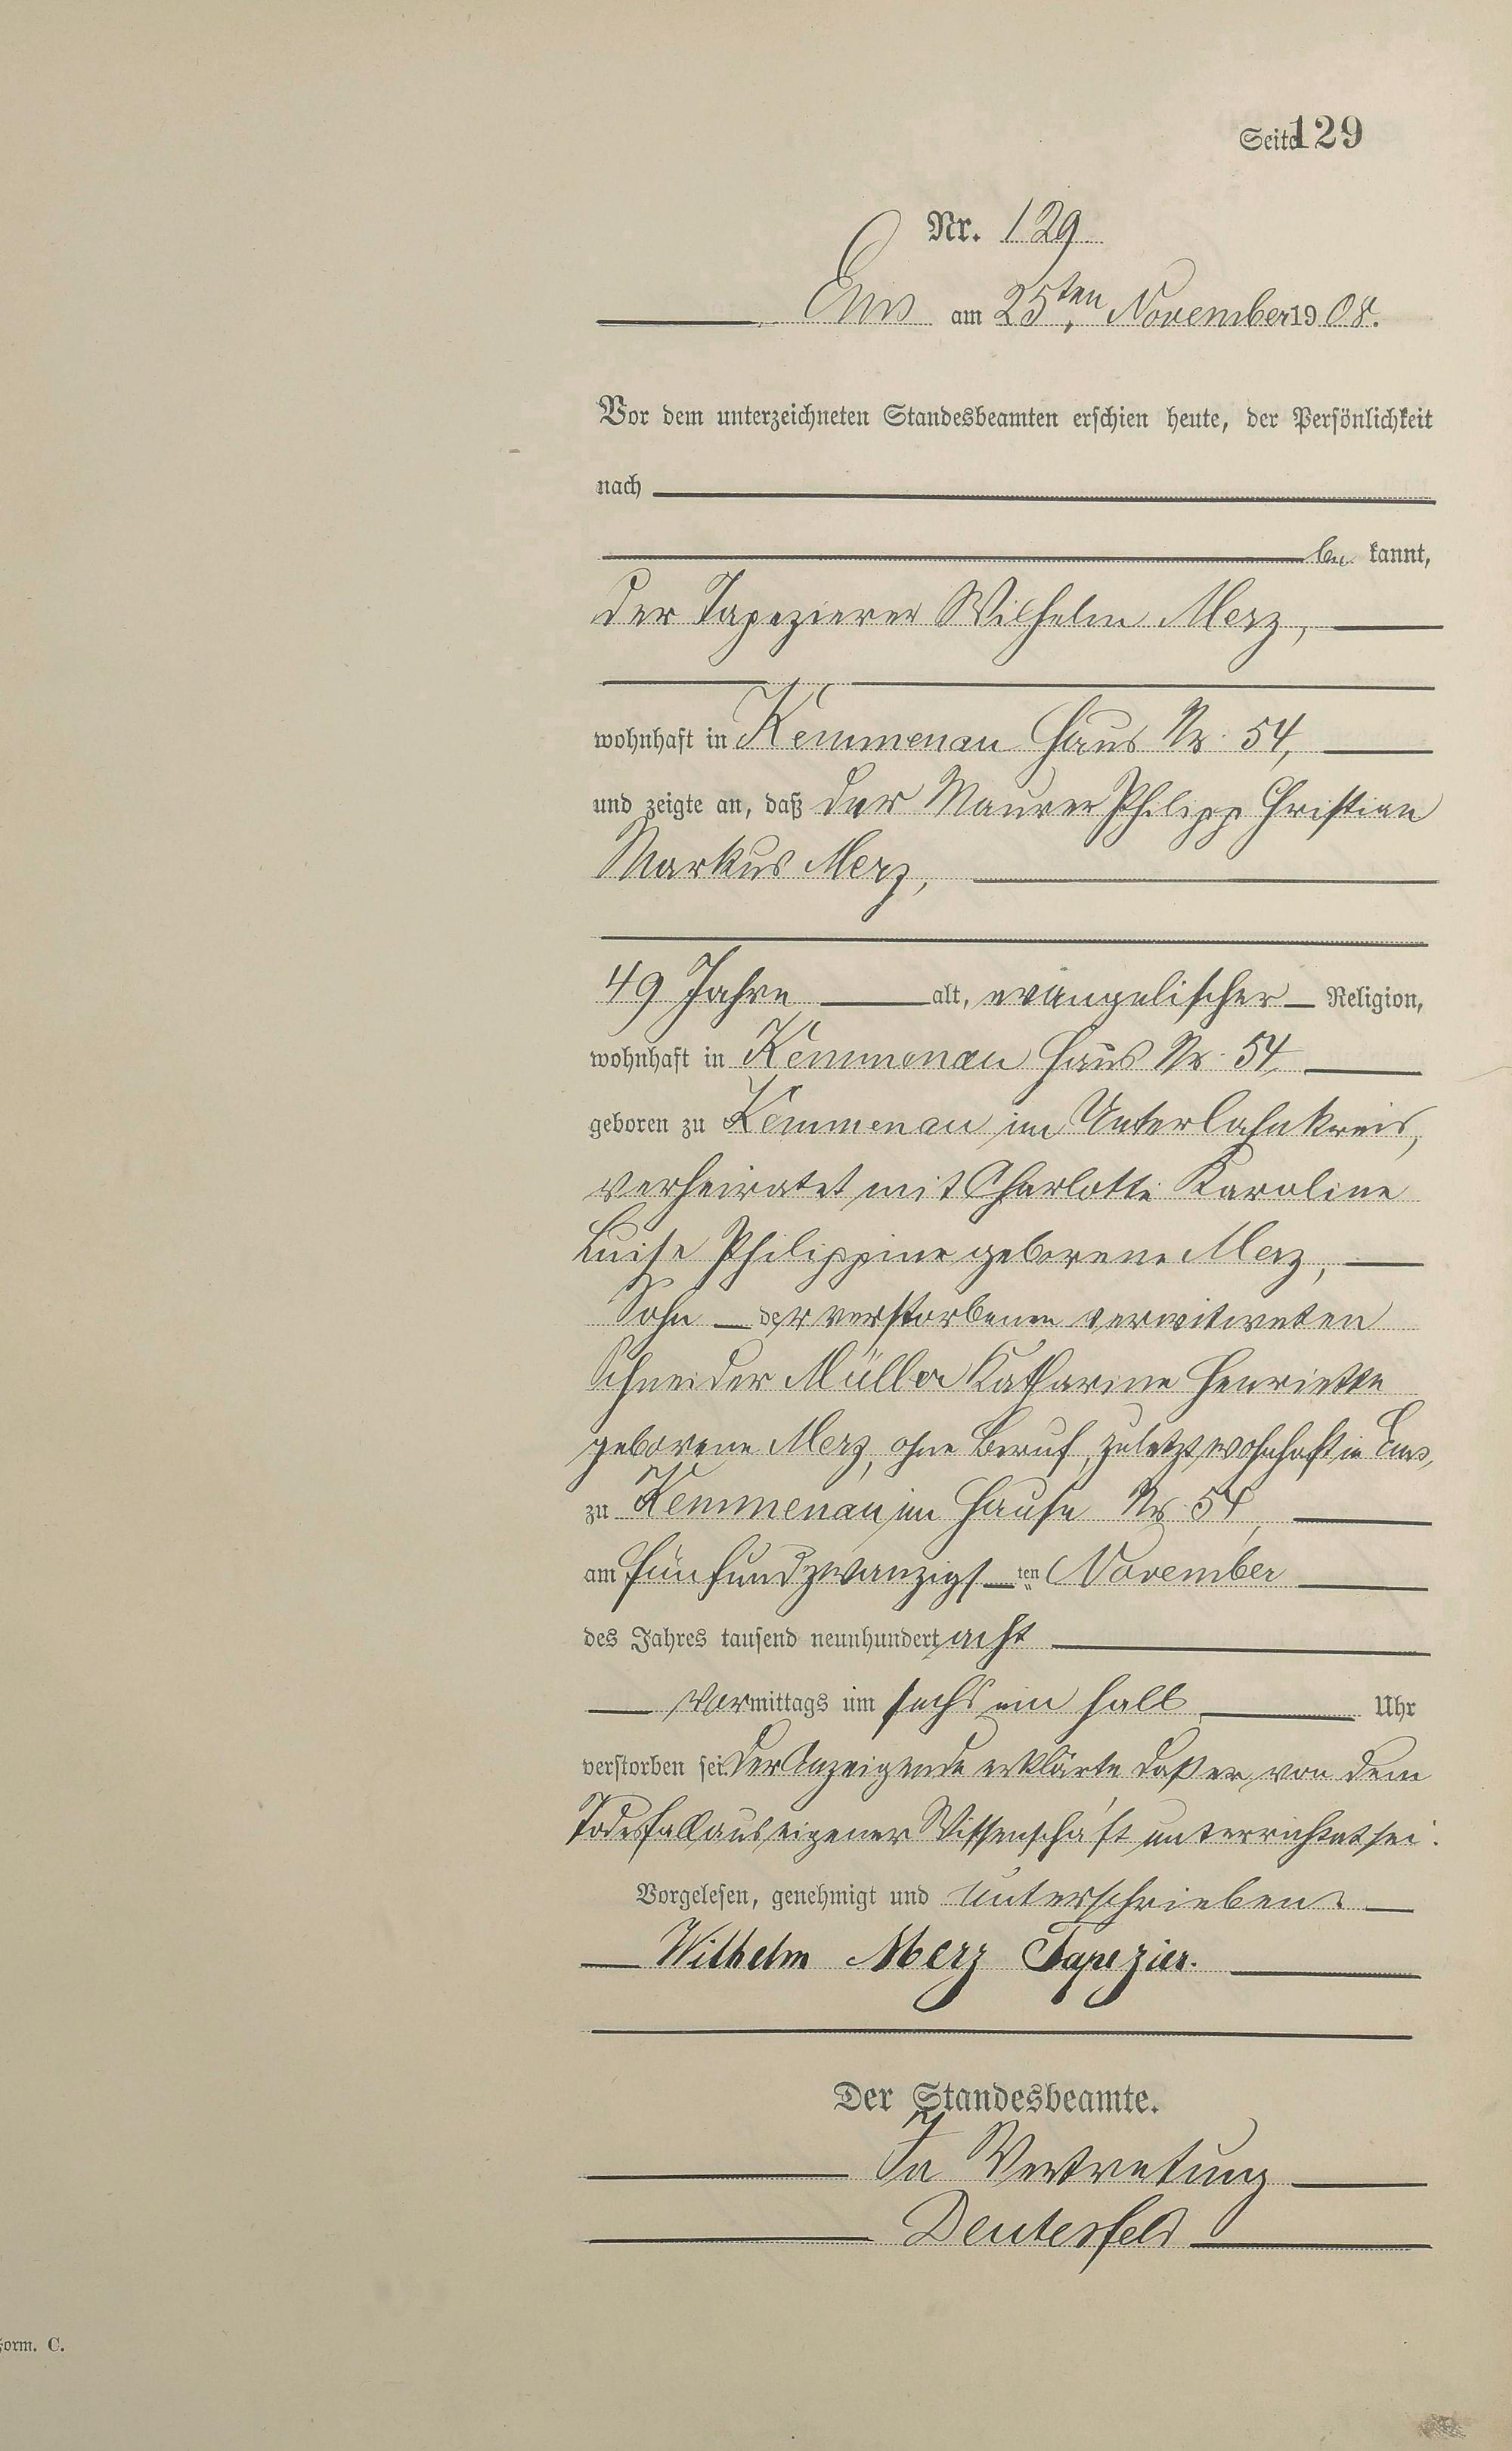 Seite 129
Nr. 129
Ems am 25ten November 1908.
Vor dem unterzeichneten Standesbeamten erschien heute, der Persönlichkeit
nach
be kannt,
der Tapezierer Wilhelm Merz,
wohnhaft in Kemmenau Haus Nr. 54,
und zeigte an, daß der Maurer Philipp Christian
Markus Merz,
49 Jahre alt, evangelischer Religion,
wohnhaft in Kemmenau Haus Nr. 54,
geboren zu Kemmenau im Unterlahnkreis,
verheiratet mit Charlotte Karoline
Luise Philippine geborene Merz,
Sohn der verstorbenen verwitweten
Schneider Müller Katharine Henriette
geborene Merz, ohne Beruf, zuletzt wohnhaft in Ems,
zu Kemmenau im Hause Nr. 54,
am fünfundzwanzigsten November
des Jahres tausend neunhundert acht
Vormittags um sechs ein halb Uhr
verstorben sei. Der Anzeigende erklärte daß er von dem
Todesfall aus eigener Wissenschaft unterrichtet sei.
Vorgelesen, genehmigt und unterschrieben.
Wilhelm Merz Tapezier.
Der Standesbeamte.
In Vertretung
Deutesfeld
Form. C.